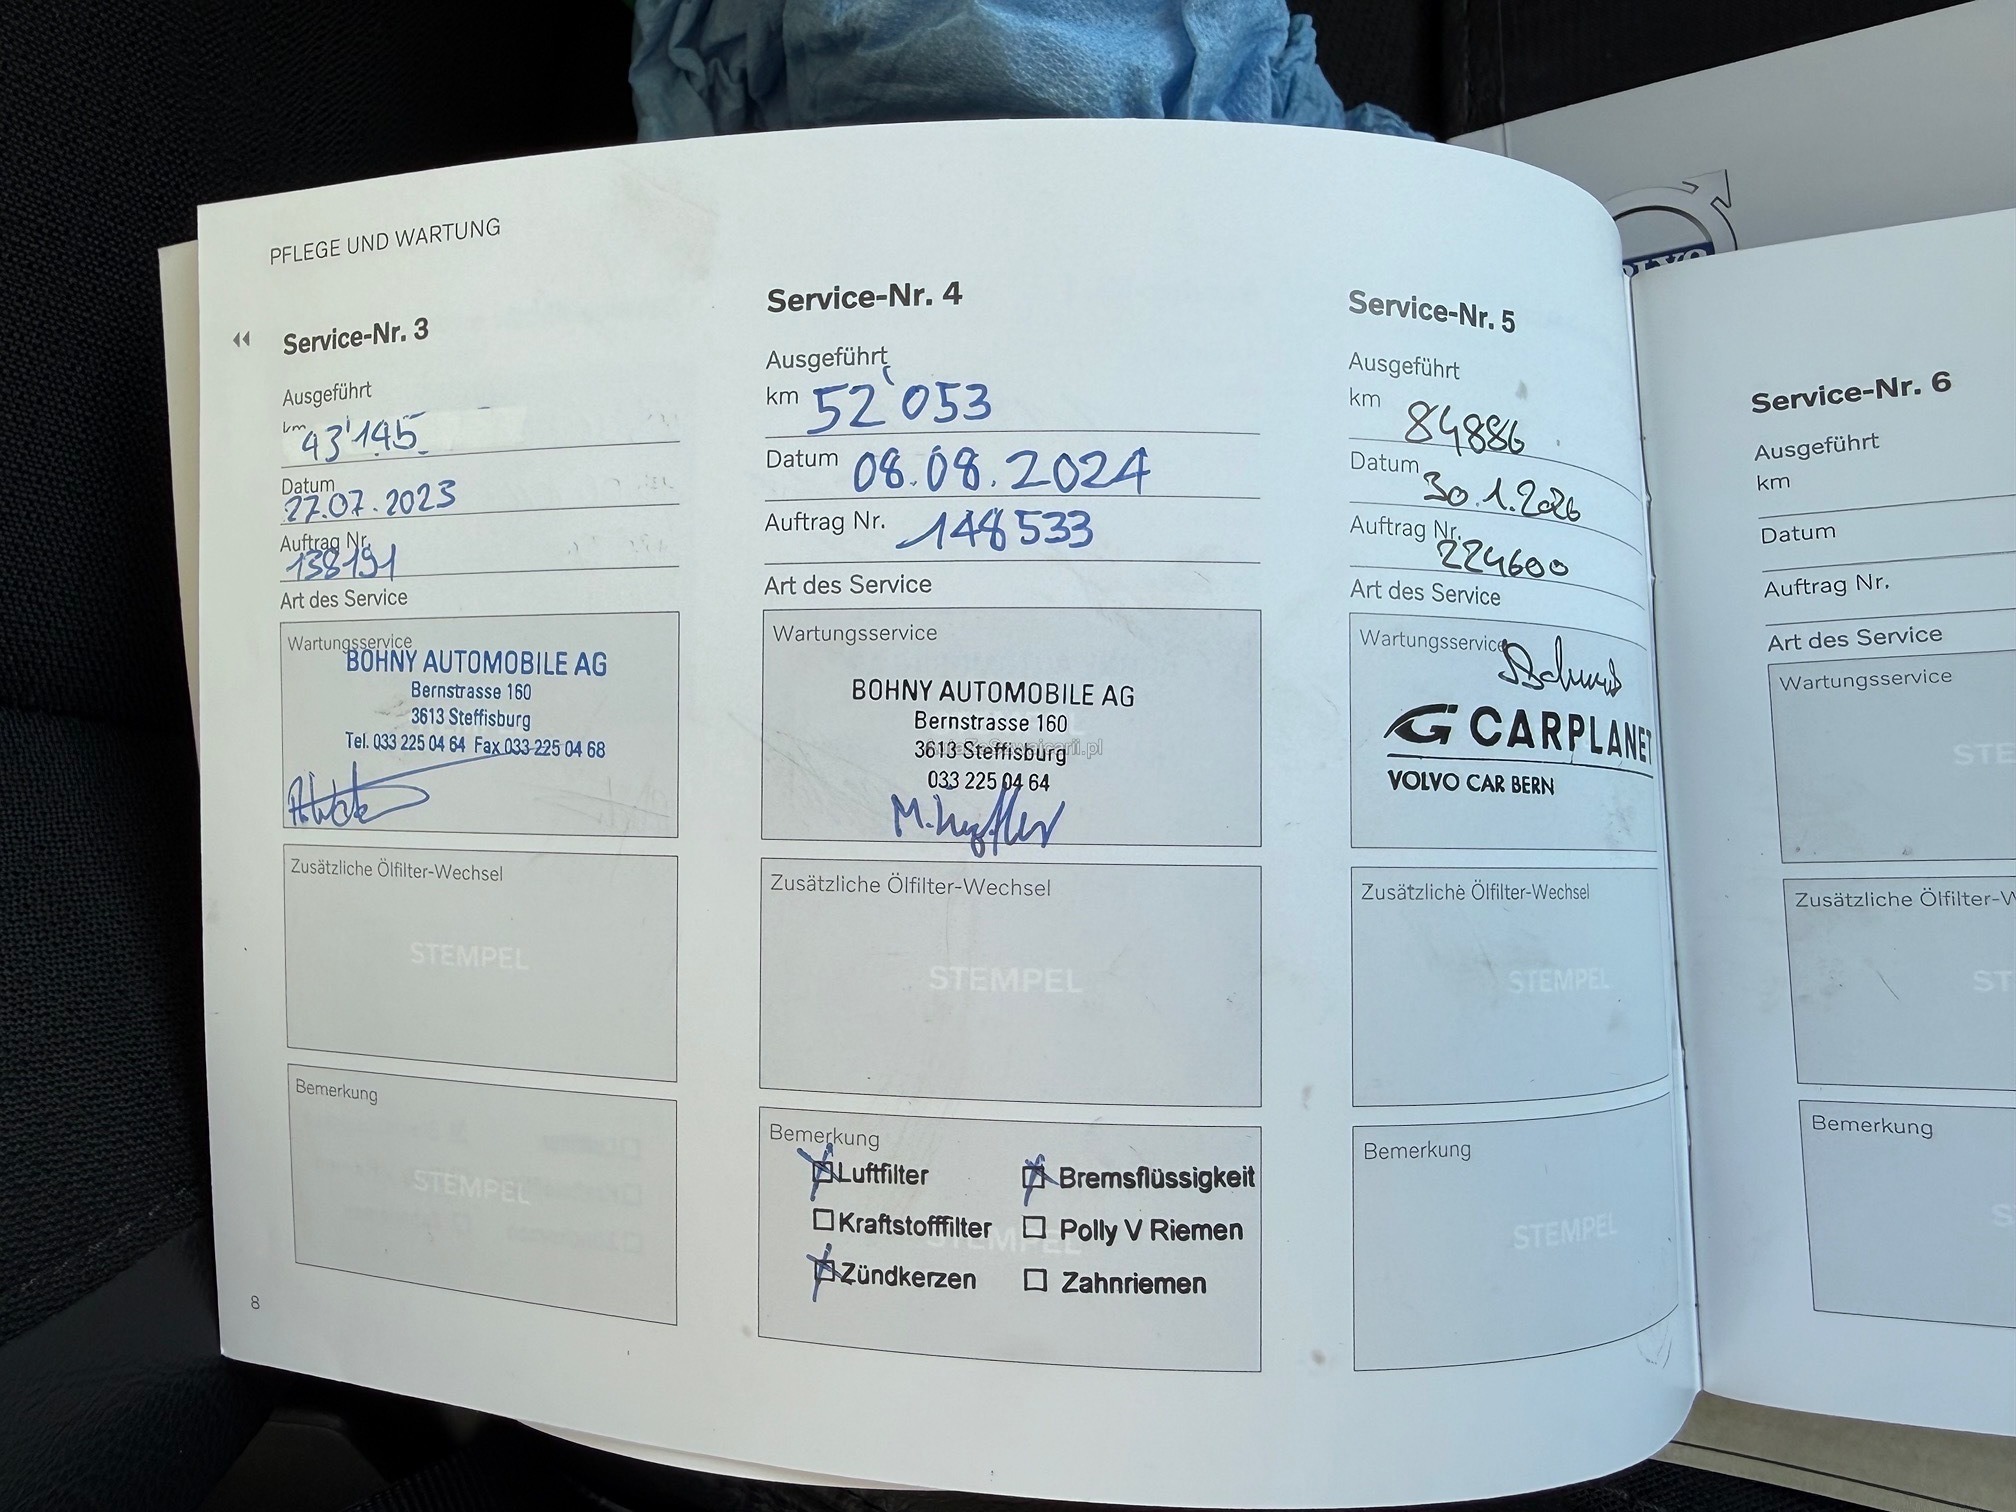 PFLEGE UND WARTUNG
Service-Nr. 3
Ausgeführt
km 43'145
Datum 27.07.2023
Auftrag Nr. 138191
Art des Service
Wartungsservice
BOHNY AUTOMOBILE AG
Bernstrasse 160
3613 Steffisburg
Tel. 033 225 04 64 Fax 033 225 04 68
Zusätzliche Ölfilter-Wechsel
STEMPEL
Bemerkung
STEMPEL
8
Service-Nr. 4
Ausgeführt
km 52'053
Datum 08.08.2024
Auftrag Nr. 148533
Art des Service
Wartungsservice
BOHNY AUTOMOBILE AG
Bernstrasse 160
3613 Steffisburg
033 225 04 64
Zusätzliche Ölfilter-Wechsel
STEMPEL
Bemerkung
Luftfilter Bremsflüssigkeit
Kraftstofffilter Polly V Riemen
STEMPEL
Zündkerzen Zahnriemen
Service-Nr. 5
Ausgeführt
km 84886
Datum 30.1.2026
Auftrag Nr. 224600
Art des Service
Wartungsservice
CARPLANET
VOLVO CAR BERN
Zusätzliche Ölfilter-Wechsel
STEMPEL
Bemerkung
STEMPEL
Service-Nr. 6
Ausgeführt
km
Datum
Auftrag Nr.
Art des Service
Wartungsservice
STE
Zusätzliche Ölfilter-W
ST
Bemerkung
S